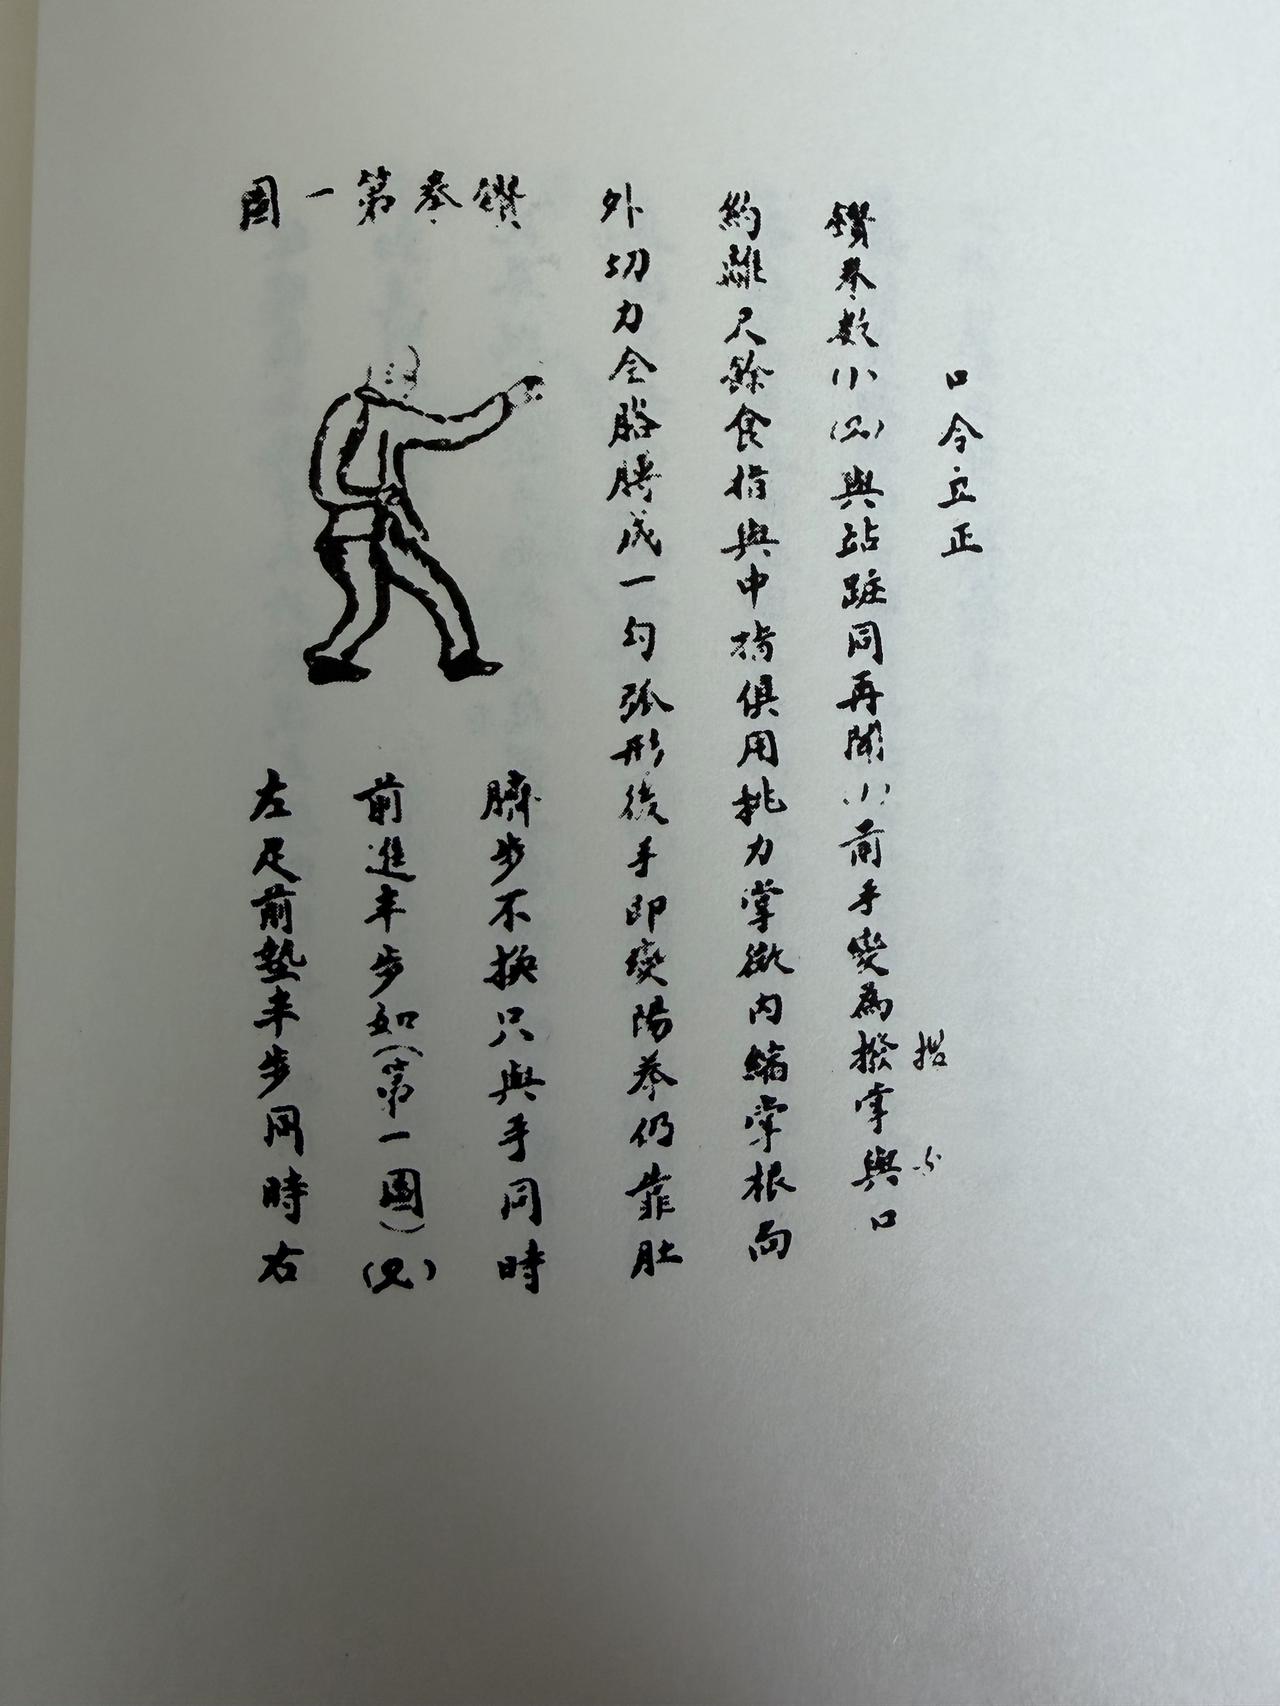 口令立正
鑽拳數(1)(2)與站踮同再聞(1)前手變為撥掌與口
約離尺餘食指與中指俱用挑力掌微內縮掌根向
外切力全胳膊成一勾弧形後手即變陽拳仍靠肚
鑽拳第一圖
臍步不換只與手同時
前進半步如(第一圖)(2)
左足前墊半步同時右